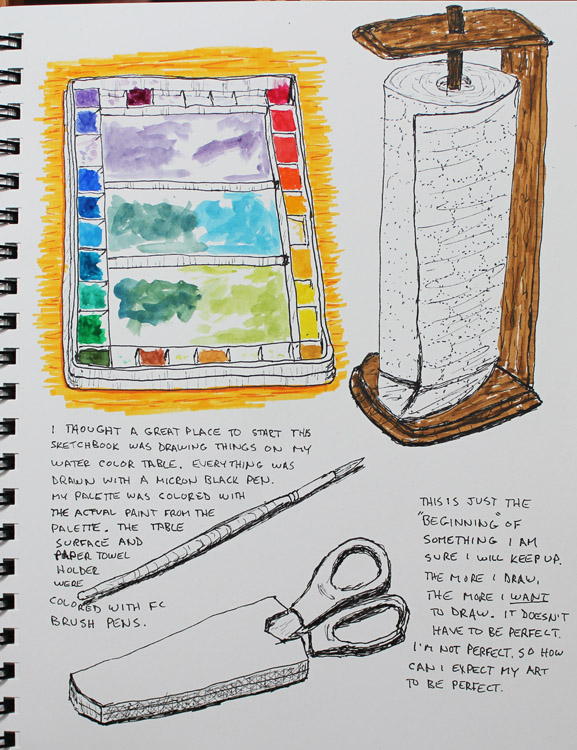 I THOUGHT A GREAT PLACE TO START THIS
SKETCHBOOK WAS DRAWING THINGS ON MY
WATER COLOR TABLE. EVERYTHING WAS
DRAWN WITH A MICRON BLACK PEN.
MY PALETTE WAS COLORED WITH
THE ACTUAL PAINT FROM THE
PALETTE. THE TABLE
SURFACE AND
PAPER TOWEL
HOLDER
WERE
COLORED WITH FC
BRUSH PENS.
THIS IS JUST THE
"BEGINNING" OF
SOMETHING I AM
SURE I WILL KEEP UP.
THE MORE I DRAW,
THE MORE I WANT
TO DRAW. IT DOESN'T
HAVE TO BE PERFECT.
I'M NOT PERFECT, SO HOW
CAN I EXPECT MY ART
TO BE PERFECT.